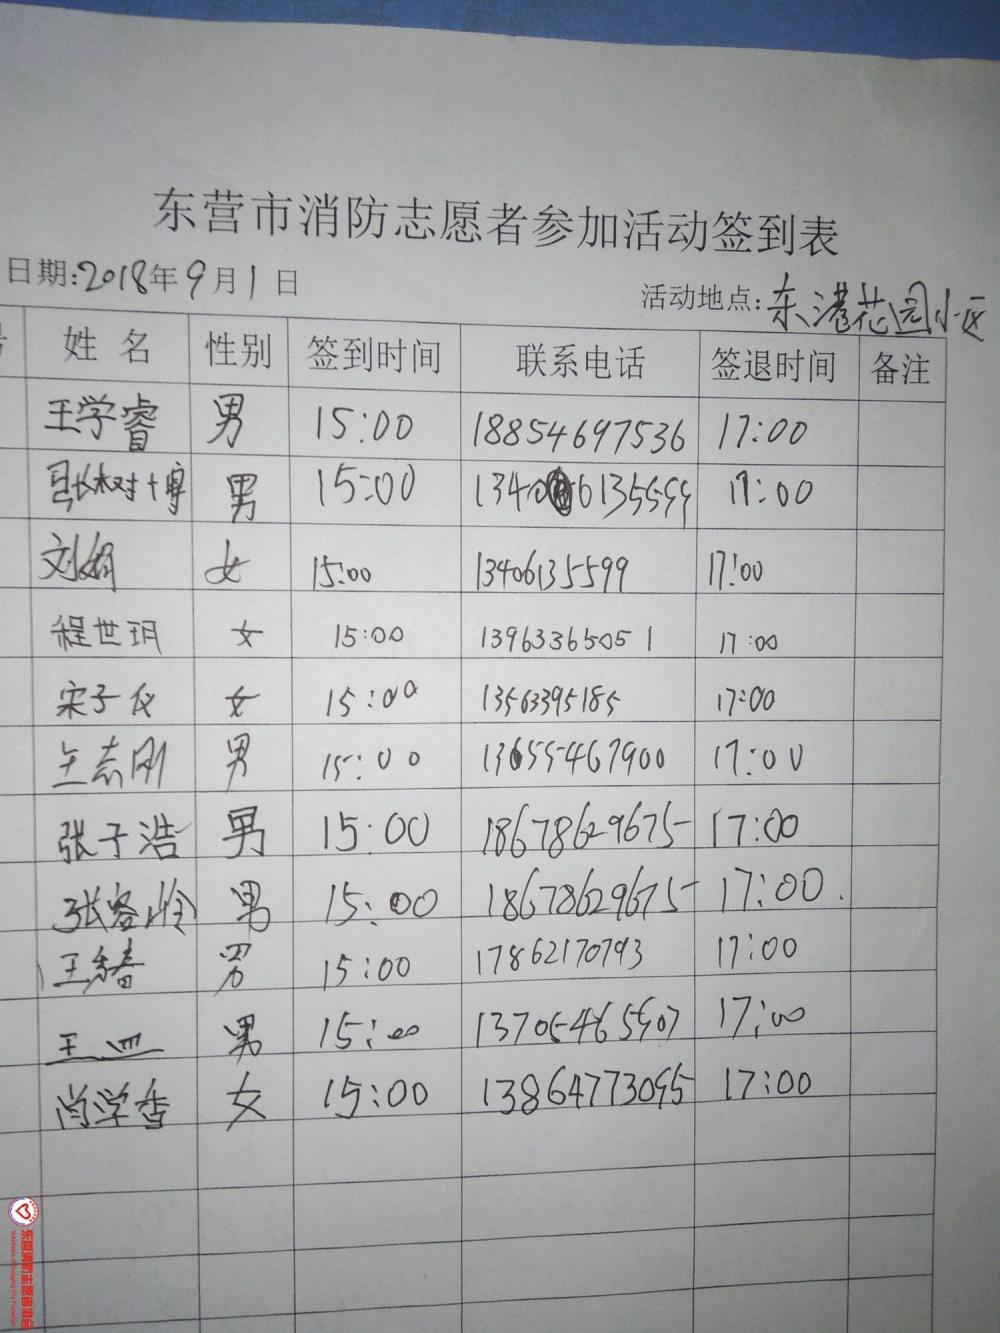 东营市消防志愿者参加活动签到表
日期:2018年9月1日 活动地点:东港花园小区
号 姓名 性别 签到时间 联系电话 签退时间 备注
王学睿 男 15:00 18854697536 17:00
张树博 男 15:00 1340 6135599 17:00
刘娟 女 15:00 13406135599 17:00
程世玥 女 15:00 13963365051 17:00
宋子仪 女 15:00 13563395185 17:00
王志刚 男 15:00 13655467900 17:00
张子浩 男 15:00 18678629675 17:00
张客 男 15:00 18678629675 17:00.
王 男 15:00 17862170793 17:00
王 男 15:00 13705465507 17:00
尚学香 女 15:00 13864773095 17:00
东营消防志愿者协会